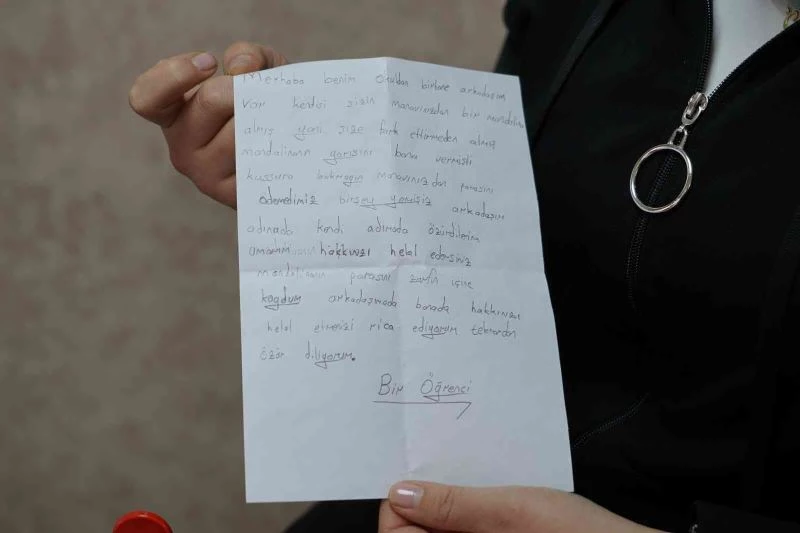 Merhaba benim Okuldan birtane arkadaşım
Var kendisi sizin manavınızdan bir mandalina
almış yani size fark ettirmeden almış
mandalinanın yarısını bana vermişti
kusura bakmayın manavınızdan parasını
ödemedimiz birşey yemişiz arkadaşım
adınada kendi adımada özürdilerim
umarım hakkınızı helal edersiniz
mandalinanın parasını zarfın içine
koydum arkadaşımada banada hakkınızı
helal etmenizi rica ediyorum tekrardan
özür diliyorum.
Bir Öğrenci